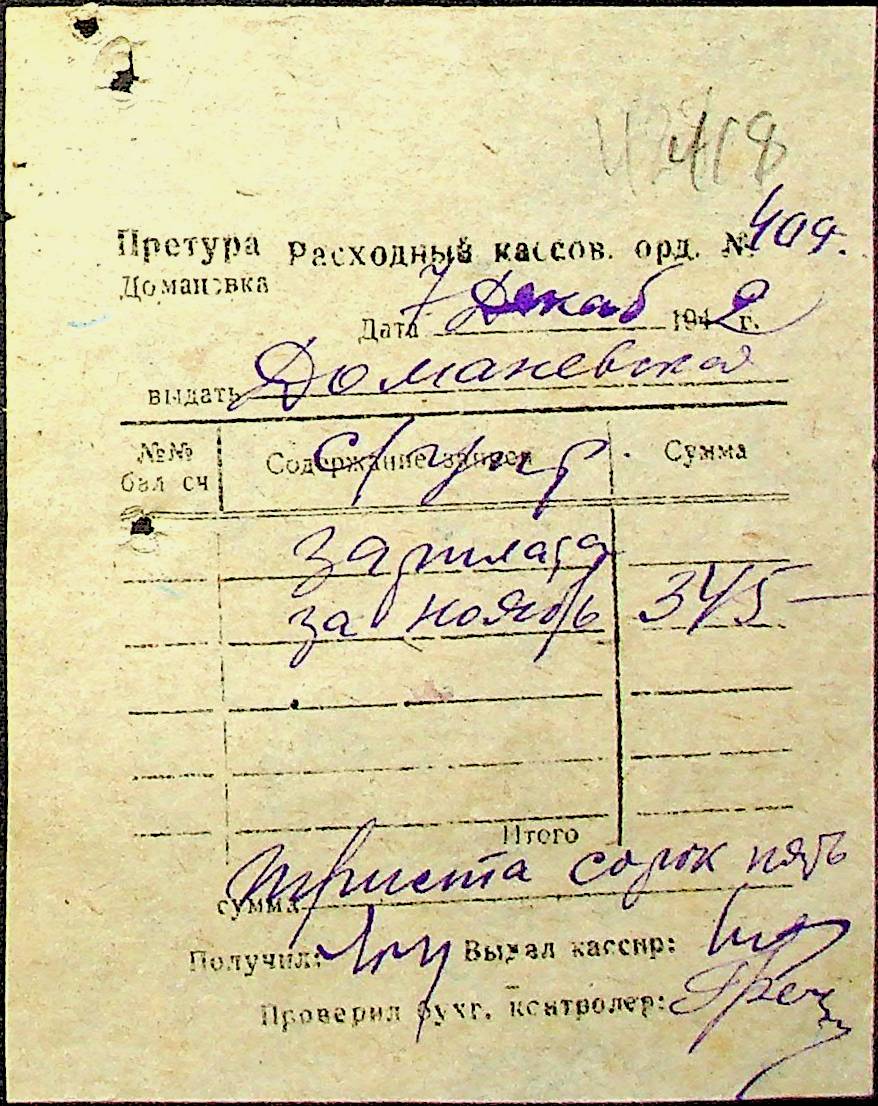 418
Претура Расходный кассов. орд. № 409.
Домановка
Дата 7 Декаб 1942 г.
выдать Доманевская
№№ бал сч Содержание записи Сумма
зарплата
за ноябрь 345 —
Итого
сумма триста сорок пять
Получил: Выдал кассир:
Проверил бухг. контролер: